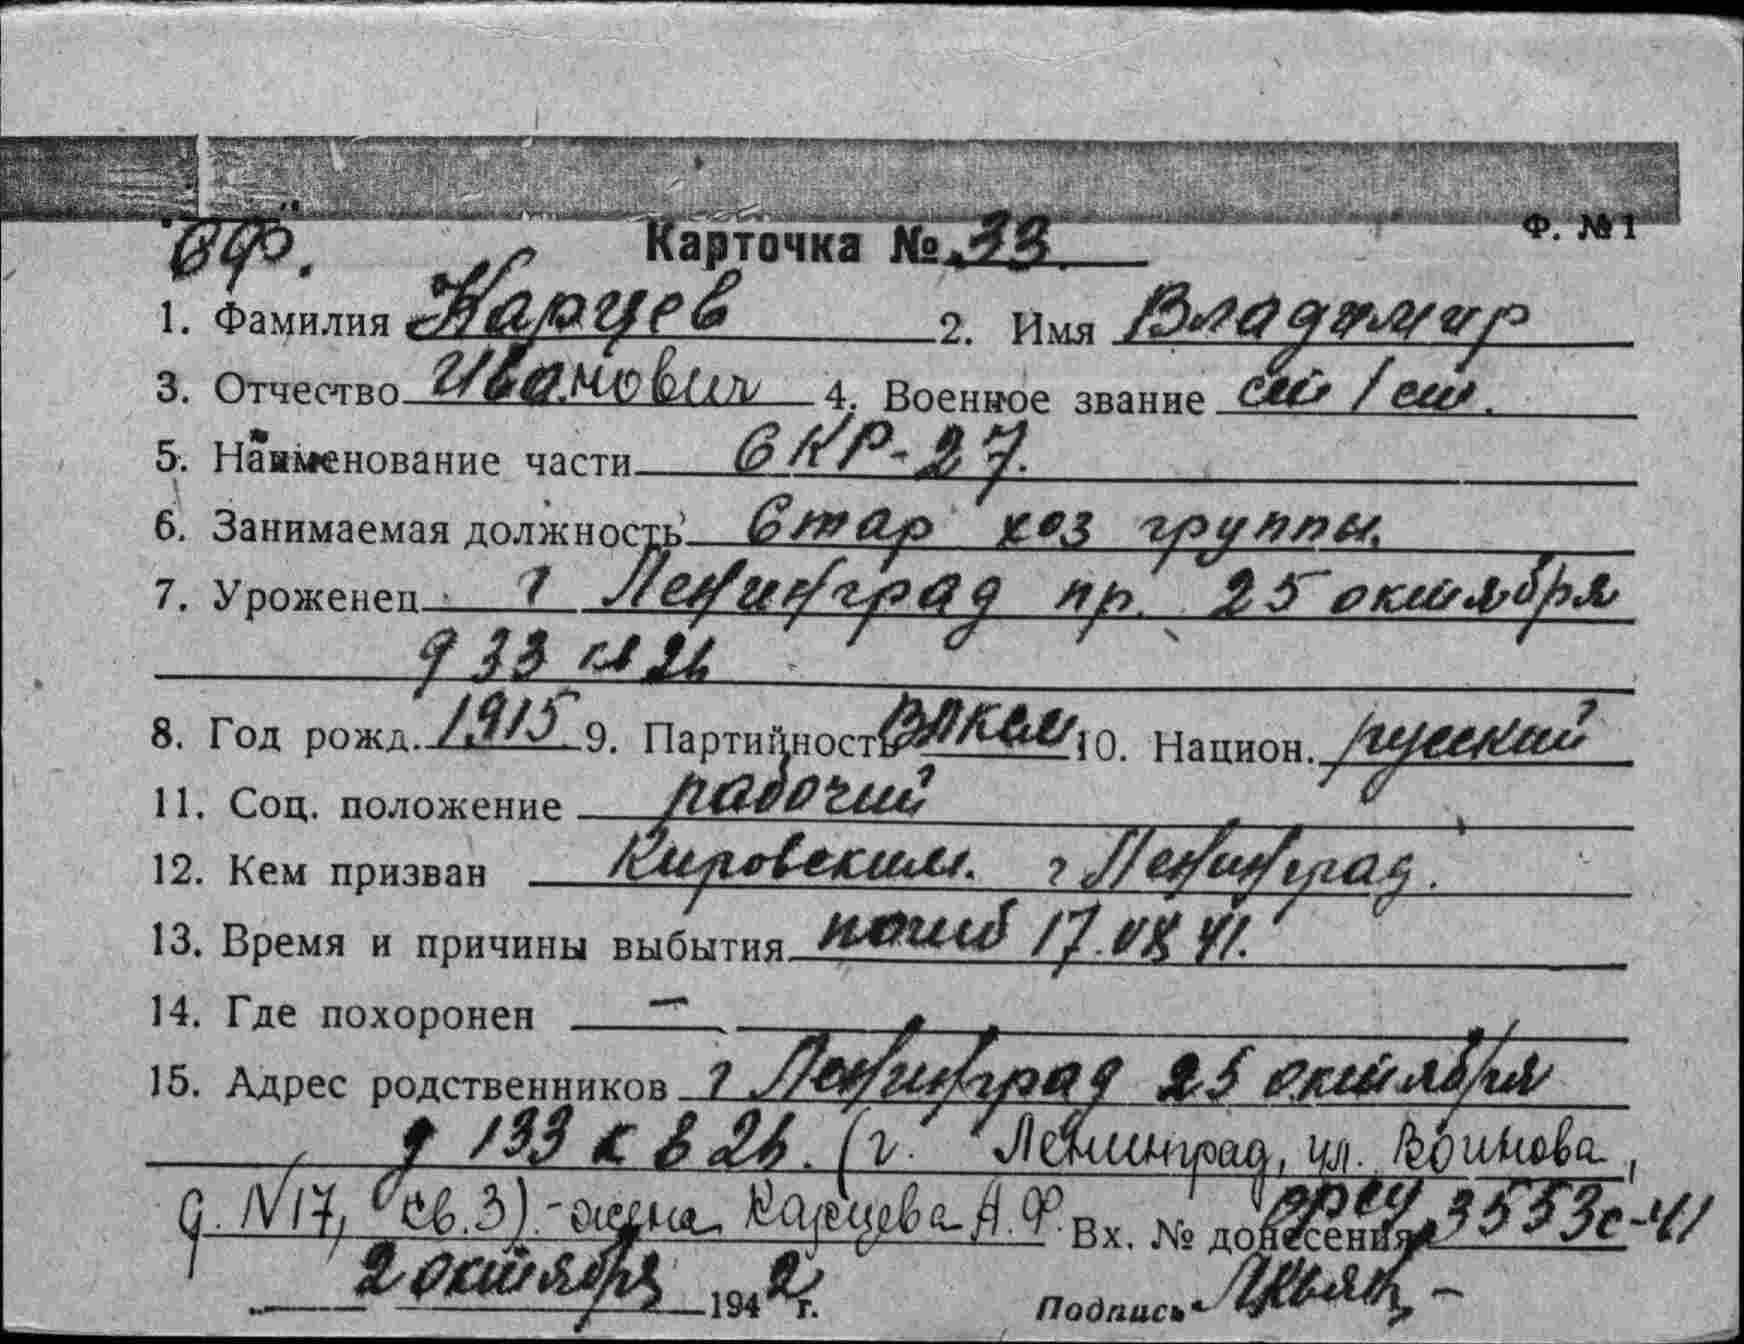 СФ.
Карточка № 33 Ф. №1
1. Фамилия Карцев 2. Имя Владимир
3. Отчество Иванович 4. Военное звание ст/ст.
5. Наименование части СКР-27.
6. Занимаемая должность Стар хоз группы.
7. Уроженец г Ленинград пр. 25 октября
д 33 кв 26
8. Год рожд. 1915 9. Партийность ВЛКСМ 10. Национ. русский
11. Соц. положение рабочий
12. Кем призван Кировским. г Ленинград.
13. Время и причины выбытия погиб 17.VIII 41.
14. Где похоронен —
15. Адрес родственников г Ленинград 25 октября
д 133 кв 26. (г. Ленинград, ул. Воинова,
д. N17, кв. 3) - жена Карцева А. Ф. Вх. № донесения 3553с-41
2 октября 1942 г. Подпись